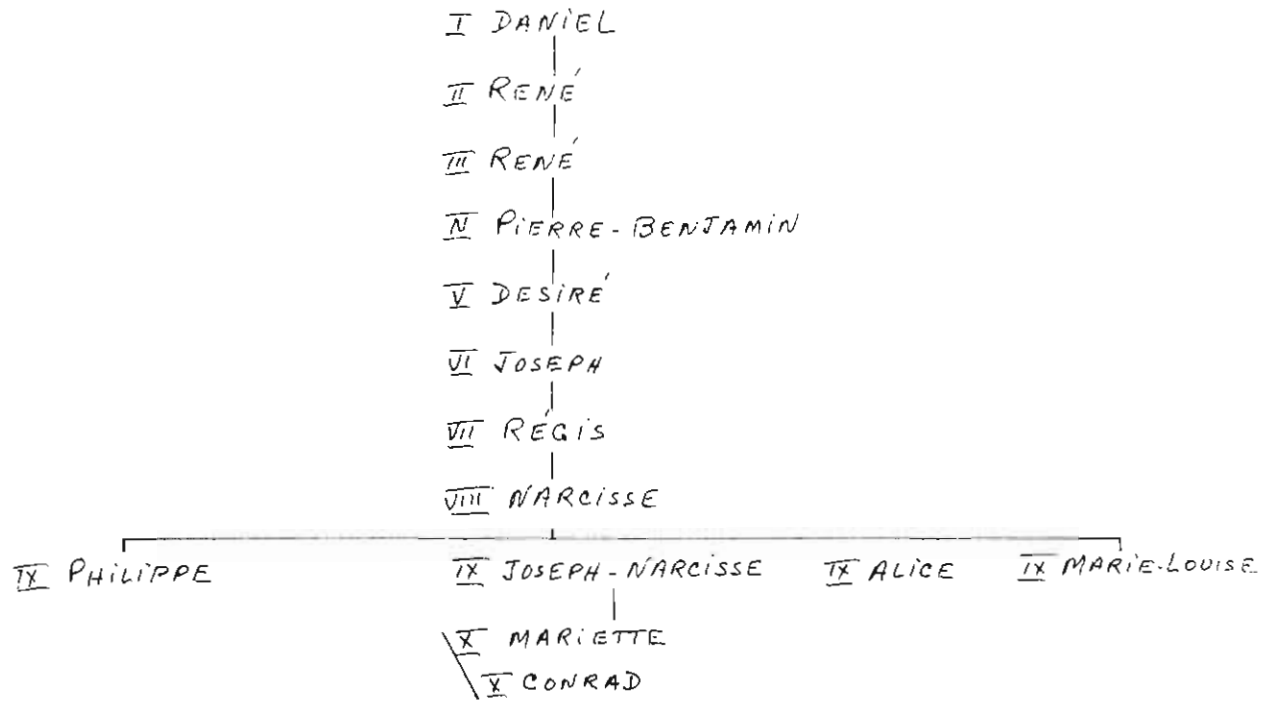 I DANIEL
II RENÉ
III RENÉ
IV PIERRE-BENJAMIN
V DESIRÉ
VI JOSEPH
VII RÉGIS
VIII NARCISSE
IX PHILIPPE IX JOSEPH-NARCISSE IX ALICE IX MARIE-LOUISE
X MARIETTE
X CONRAD